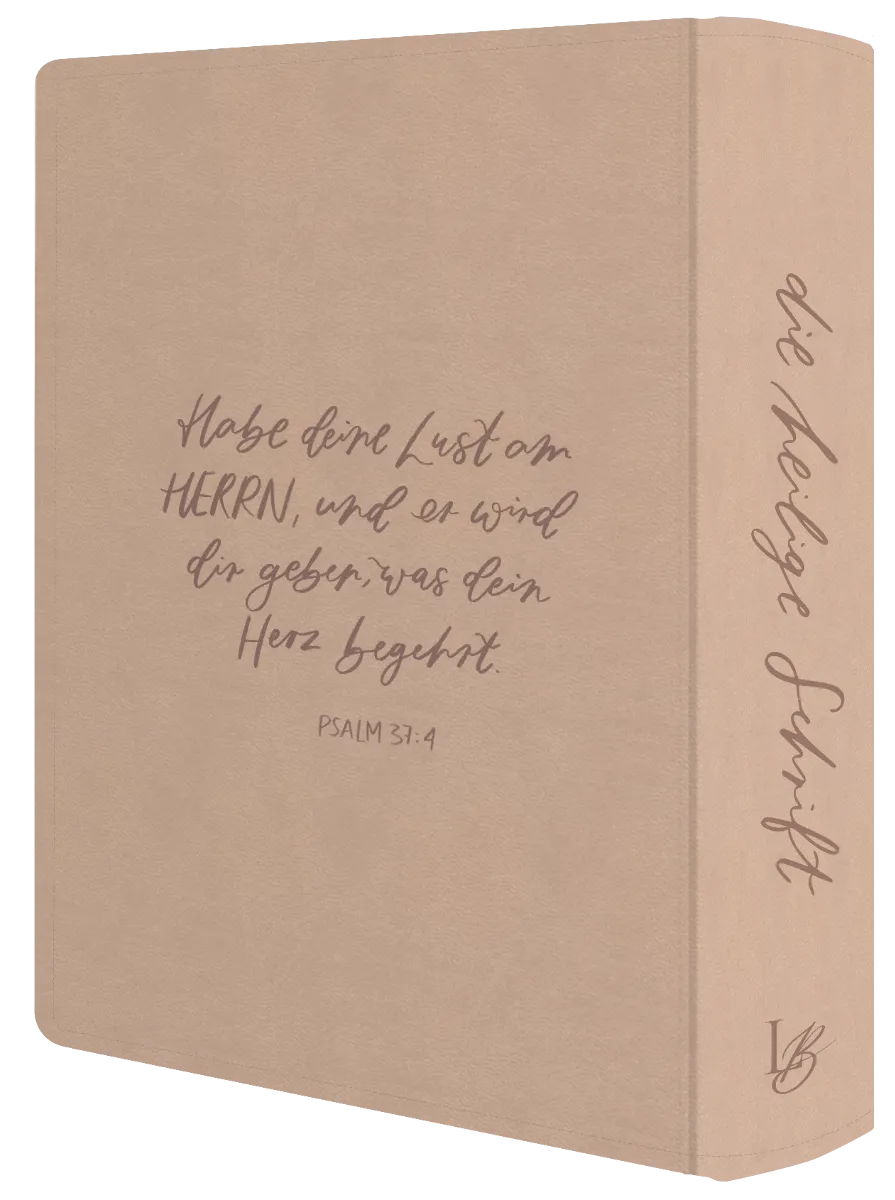 Habe deine Lust am
HERRN, und er wird
dir geben, was dein
Herz begehrt.
PSALM 37:4
die heilige Schrift
LB